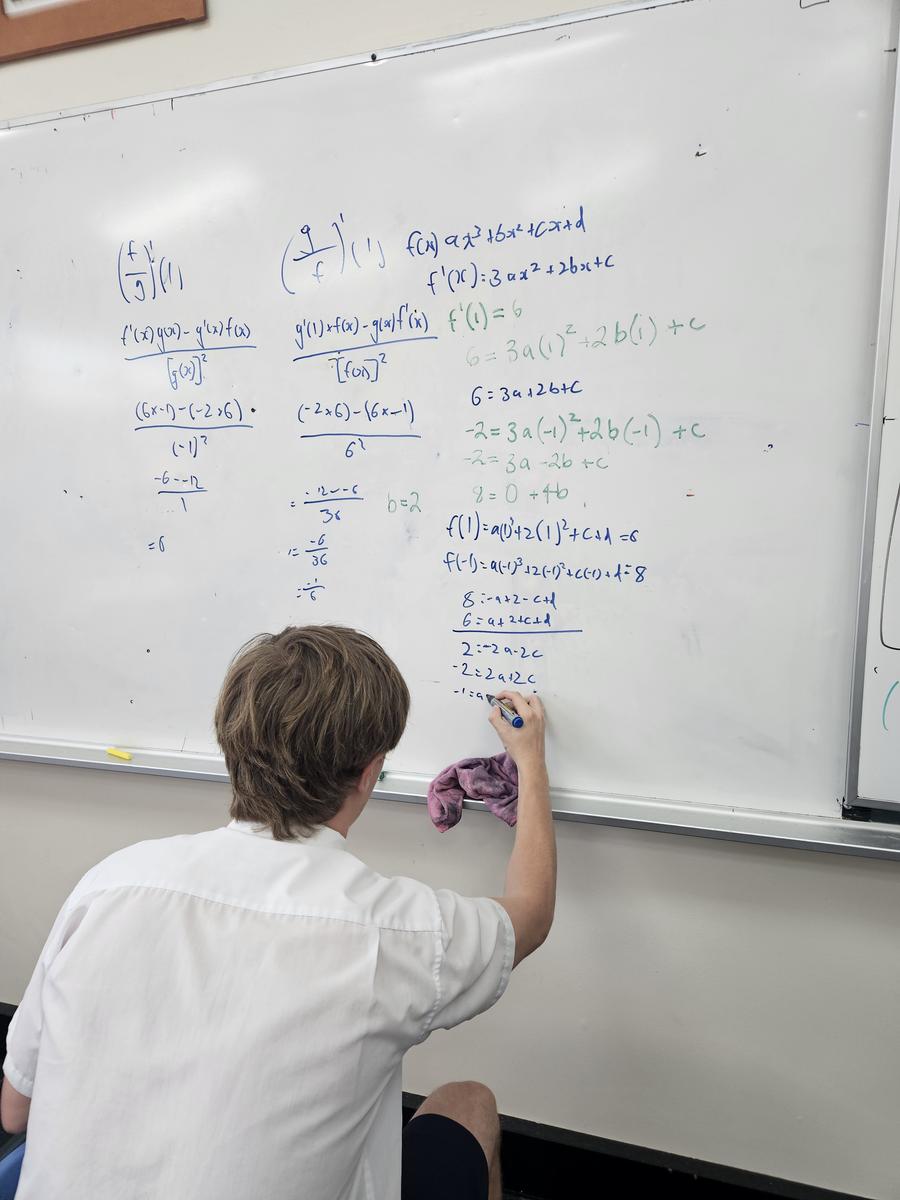 (f/g)'(1)
f'(x)g(x) - g'(x)f(x)
[g(x)]²
(6x-1)-(-2x6)
(-1)²
-6--12
1
=6
(g/f)'(1)
g'(1)xf(x) - g(x)f'(x)
[f(x)]²
(-2x6)-(6x-1)
6²
= -12--6
36
= -6
36
= -1
6
b=2
f(x) ax³+bx²+cx+d
f'(x)=3ax²+2bx+c
f'(1)=6
6=3a(1)²+2b(1)+c
6=3a+2b+c
-2=3a(-1)²+2b(-1)+c
-2=3a-2b+c
8=0+4b
f(1)=a(1)³+2(1)²+c+d=6
f(-1)=a(-1)³+2(-1)²+c(-1)+d=8
8=-a+2-c+d
6=a+2+c+d
2=-2a-2c
-2=2a+2c
-1=a